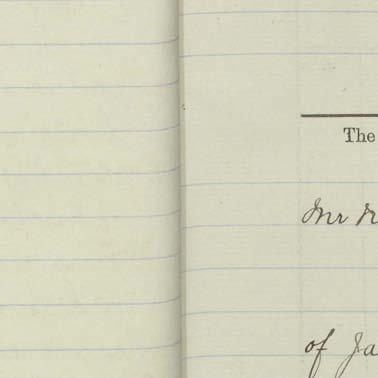 The
Mr
of Ja